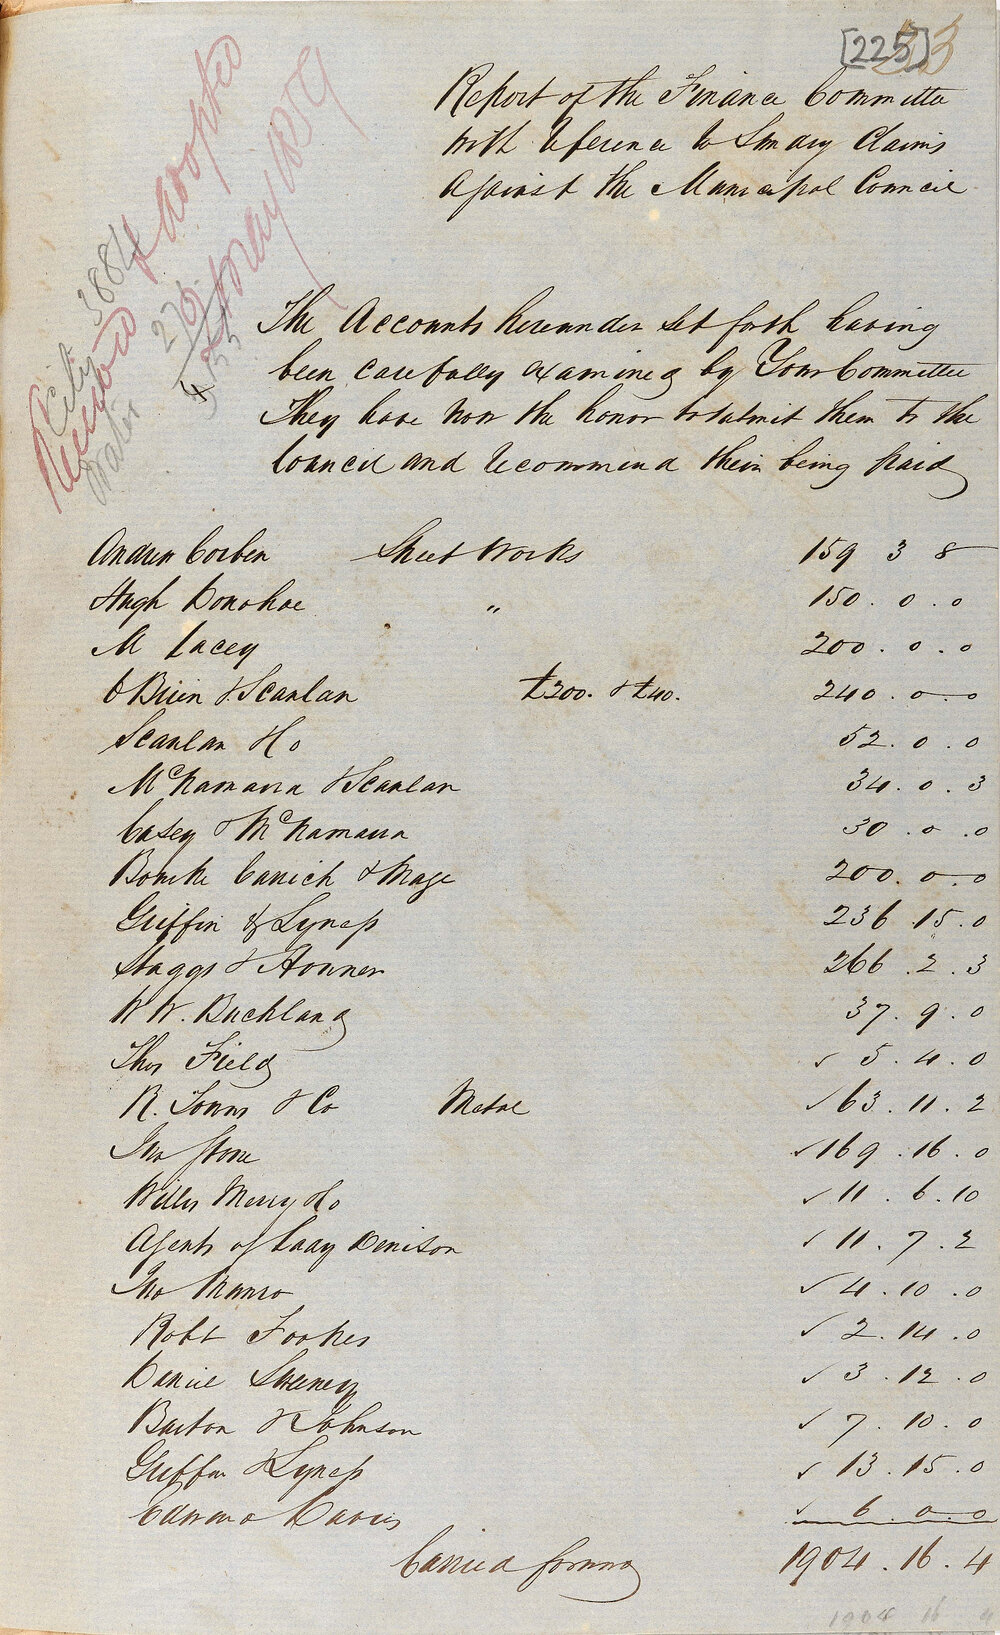 [225] 33
Report of the Finance Committee
with reference to Sundry Claims
against the Municipal Council
Received & adopted
May 1859
City
3884
276
The Accounts hereunder set forth having
been carefully examined by Your Committee
They have now the honor to submit them to the
Council and recommend their being paid
Andrew Corben Street Works 159 3 8
Hugh Donohoe " 150 . 0 . 0
M Lacey 200 . 0 . 0
O'Brien & Scanlan £200. & £40. 240 . 0 - 0
Scanlan & Co 52 . 0 . 0
McNamara & Scanlan 34 . 0 . 3
Casey & McNamara 30 . 0 . 0
Bourke & Mage 200 . 0 - 0
Griffin & Lynch 236 . 15 . 0
Staggs & Honner 266 . 2 . 3
W W. Buckland 37 . 9 . 0
Thos Field ✓ 5 . 4 . 0
R. Towns & Co Metal ✓ 63 . 11 . 2
Jno Stone ✓ 169 . 16 . 0
Willis Merry & Co ✓ 11 . 6 . 10
Agents of Lady Denison ✓ 11 . 7 . 2
Jno Munro ✓ 4 . 10 . 0
Robt Fookes ✓ 2 . 14 . 0
Daniel Sweeney ✓ 3 . 12 . 0
Barton & Johnson ✓ 7 . 10 . 0
Griffin & Lynch ✓ 13 . 15 . 0
Edward Davis ✓ 6 . 0 - 0
Carried forward 1904 . 16 . 4
1904 16 4